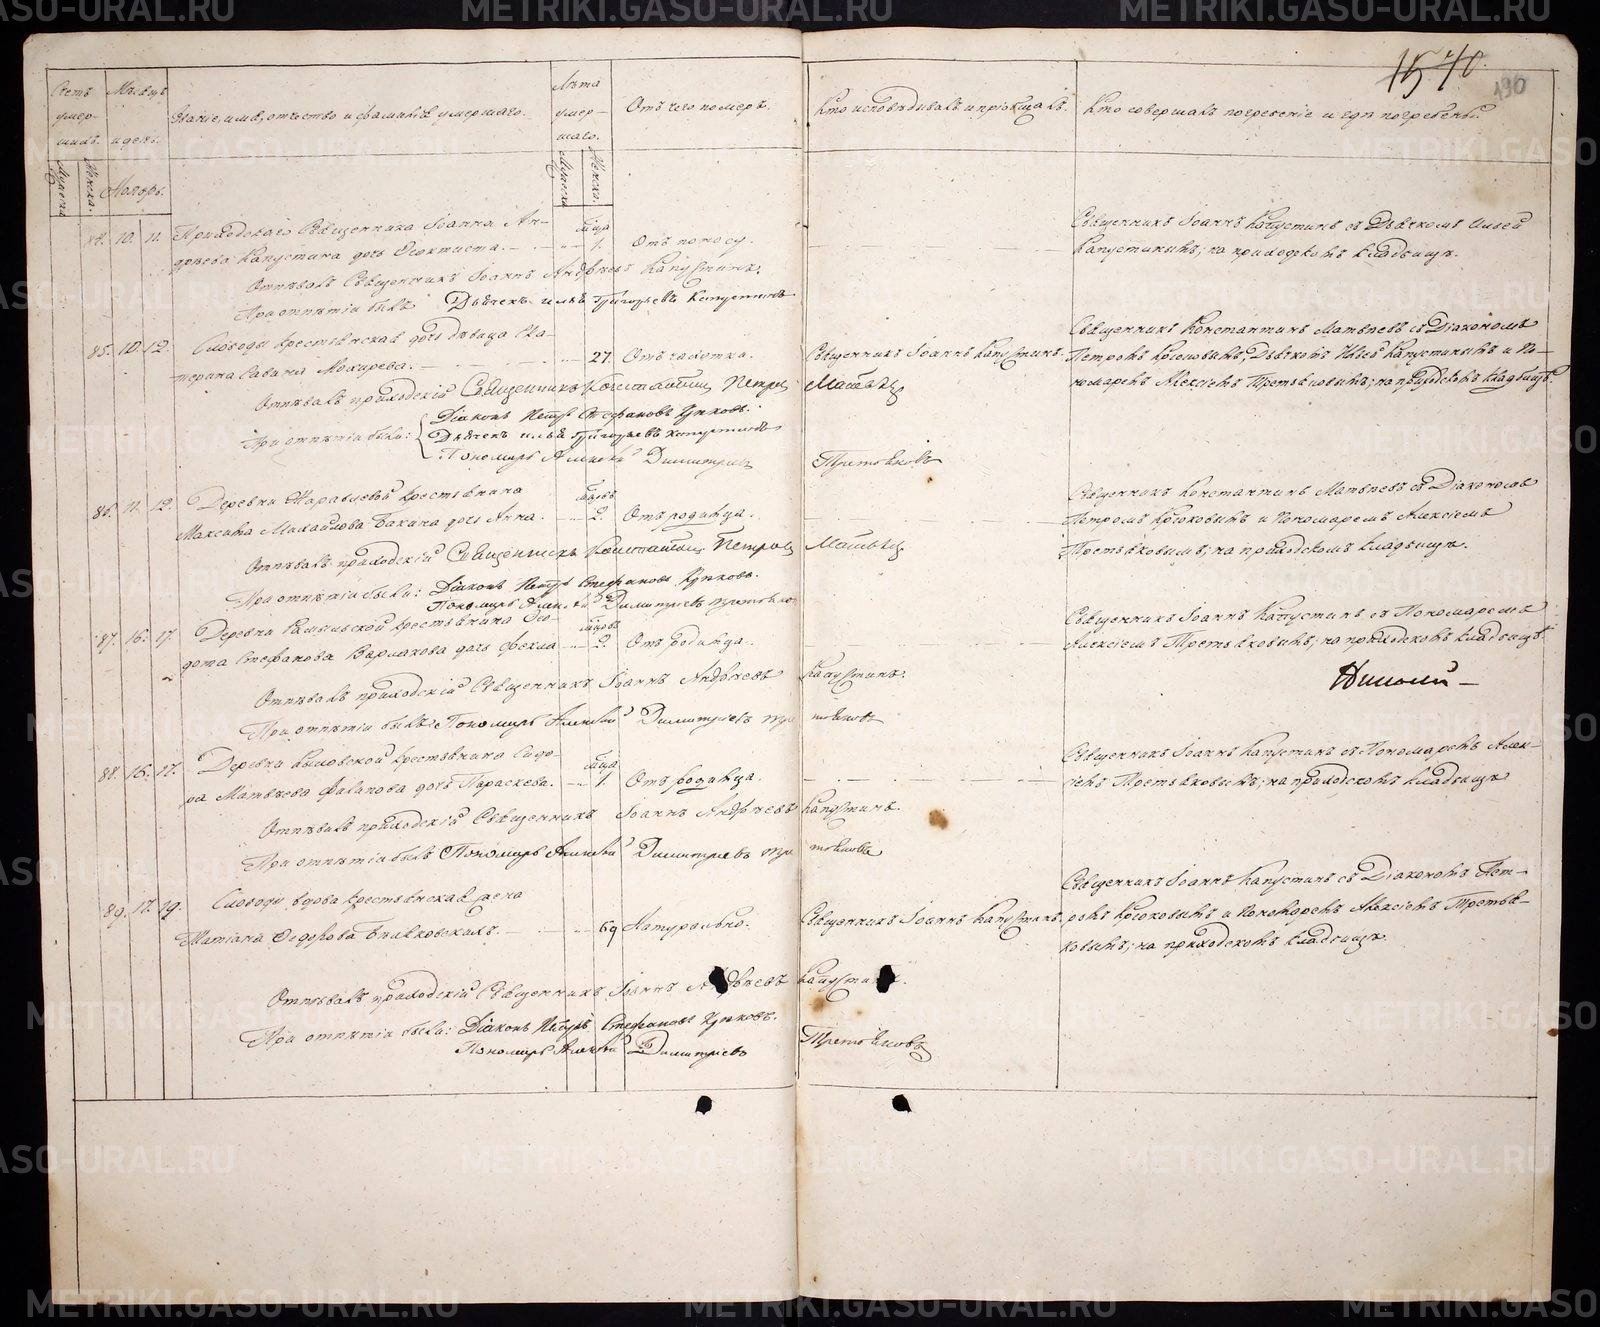 1540.
190
Счетъ умер-шихъ.
Мѣсяцъ и день.
Званіе, имя, отчество и фамилія умершаго.
Лѣта умер-шаго.
Отъ чего померъ.
Кто исповѣдывалъ и пріобщалъ.
Кто совершалъ погребеніе и гдѣ погребены.
Мужска
Женска.
Ноябрь.
Мужска
Женска.
84. 10. 11. Приходскаго Священника Іоанна Ан-
дрѣева Капустина дочь Ѳеоктиста. мца 1. Отъ поносу.
Священникъ Іоаннъ Капустинъ съ Дьячкомъ Ильей
Капустинымъ; на приходскомъ кладбищѣ.
Отпѣвалъ Священникъ Іоаннъ Андрѣевъ Капустинъ.
При отпѣтіи былъ Дьячекъ Илья Григорьевъ Капустинъ
85. 10. 12. Слободы крестьянская дочь дѣвица Ека-
терина Савина Мокирева. 27. Отъ чахотки. Священникъ Іоаннъ Капустинъ.
Священникъ Константинъ Матвѣевъ съ Діакономъ
Петромъ Крюковымъ, Дьячкомъ Ильей Капустинымъ и По-
номаремъ Алексіемъ Третьяковымъ; на приходскомъ кладбищѣ.
Отпѣвалъ приходскій Священникъ Константинъ Петровъ Матвѣевъ
При отпѣтіи были: Діаконъ Петръ Стефановъ Крюковъ.
Дьячекъ Илья Григорьевъ Капустинъ
Пономарь Алексѣй Димитріевъ Третьяковъ
86. 11. 12. Деревни Жаравлевой крестьянина
Максима Михайлова Бахина дочь Анна. мцовъ 2. Отъ родимца.
Священникъ Константинъ Матвѣевъ съ Діакономъ
Петромъ Крюковымъ и Пономаремъ Алексіемъ
Третьяковымъ; на приходскомъ кладбищѣ.
Отпѣвалъ приходскій Священникъ Константинъ Петровъ Матвѣевъ
При отпѣтіи были: Діаконъ Петръ Стефановъ Крюковъ.
Пономарь Алексѣй Димитріевъ Третьяков
87. 16. 17. Деревни крестьянина Ѳео-
дота Стефанова Варлакова дочь Фекла мцовъ 2. Отъ родимца.
Священникъ Іоаннъ Капустинъ съ Пономаремъ
Алексіемъ Третьяковымъ; на приходскомъ кладбищѣ.
Отпѣвалъ приходскій Священникъ Іоаннъ Андрѣевъ Капустинъ.
При отпѣтіи былъ Пономарь Алексѣй Димитріевъ Третьяковъ
88. 16. 17. Деревни крестьянина Сидо-
ра Матвѣева дочь Параскева. мца 1. Отъ родимца.
Священникъ Іоаннъ Капустинъ съ Пономаремъ Алек-
сіемъ Третьяковымъ; на приходскомъ кладбищѣ
Отпѣвалъ приходскій Священникъ Іоаннъ Андрѣевъ Капустинъ.
При отпѣтіи былъ Пономарь Алексѣй Димитріевъ Третьяковъ
89. 17. 19. Слободы вдова крестьянская жена
Матіана Ѳедорова 69 Натурально. Священникъ Іоаннъ Капустинъ.
Священникъ Іоаннъ Капустинъ съ Діакономъ Пет-
ромъ Крюковымъ и Пономаремъ Алексіемъ Третья-
ковымъ; на приходскомъ кладбищѣ.
Отпѣвалъ приходскій Священникъ Іоаннъ Андрѣевъ Капустинъ.
При отпѣтіи были: Діаконъ Петръ Стефановъ Крюковъ.
Пономарь Алексѣй Димитріевъ Третьяковъ
METRIKI.GASO-URAL.RU